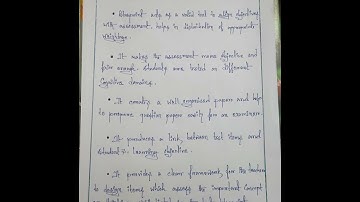 • Blueprint acts as a valid tool to align objectives
with assessment. helps in distribution of appropriate
weightage.
• It makes the assessment more objective and
fair enough. Students are tested on different
Cognitive domains.
• It creates a well organised papers and help
to prepare question papers easily for an examiner.
• It produces a link between test items and
student's learning objective.
• It provides a clear framework, for the teachers
to design items which assess the important concept